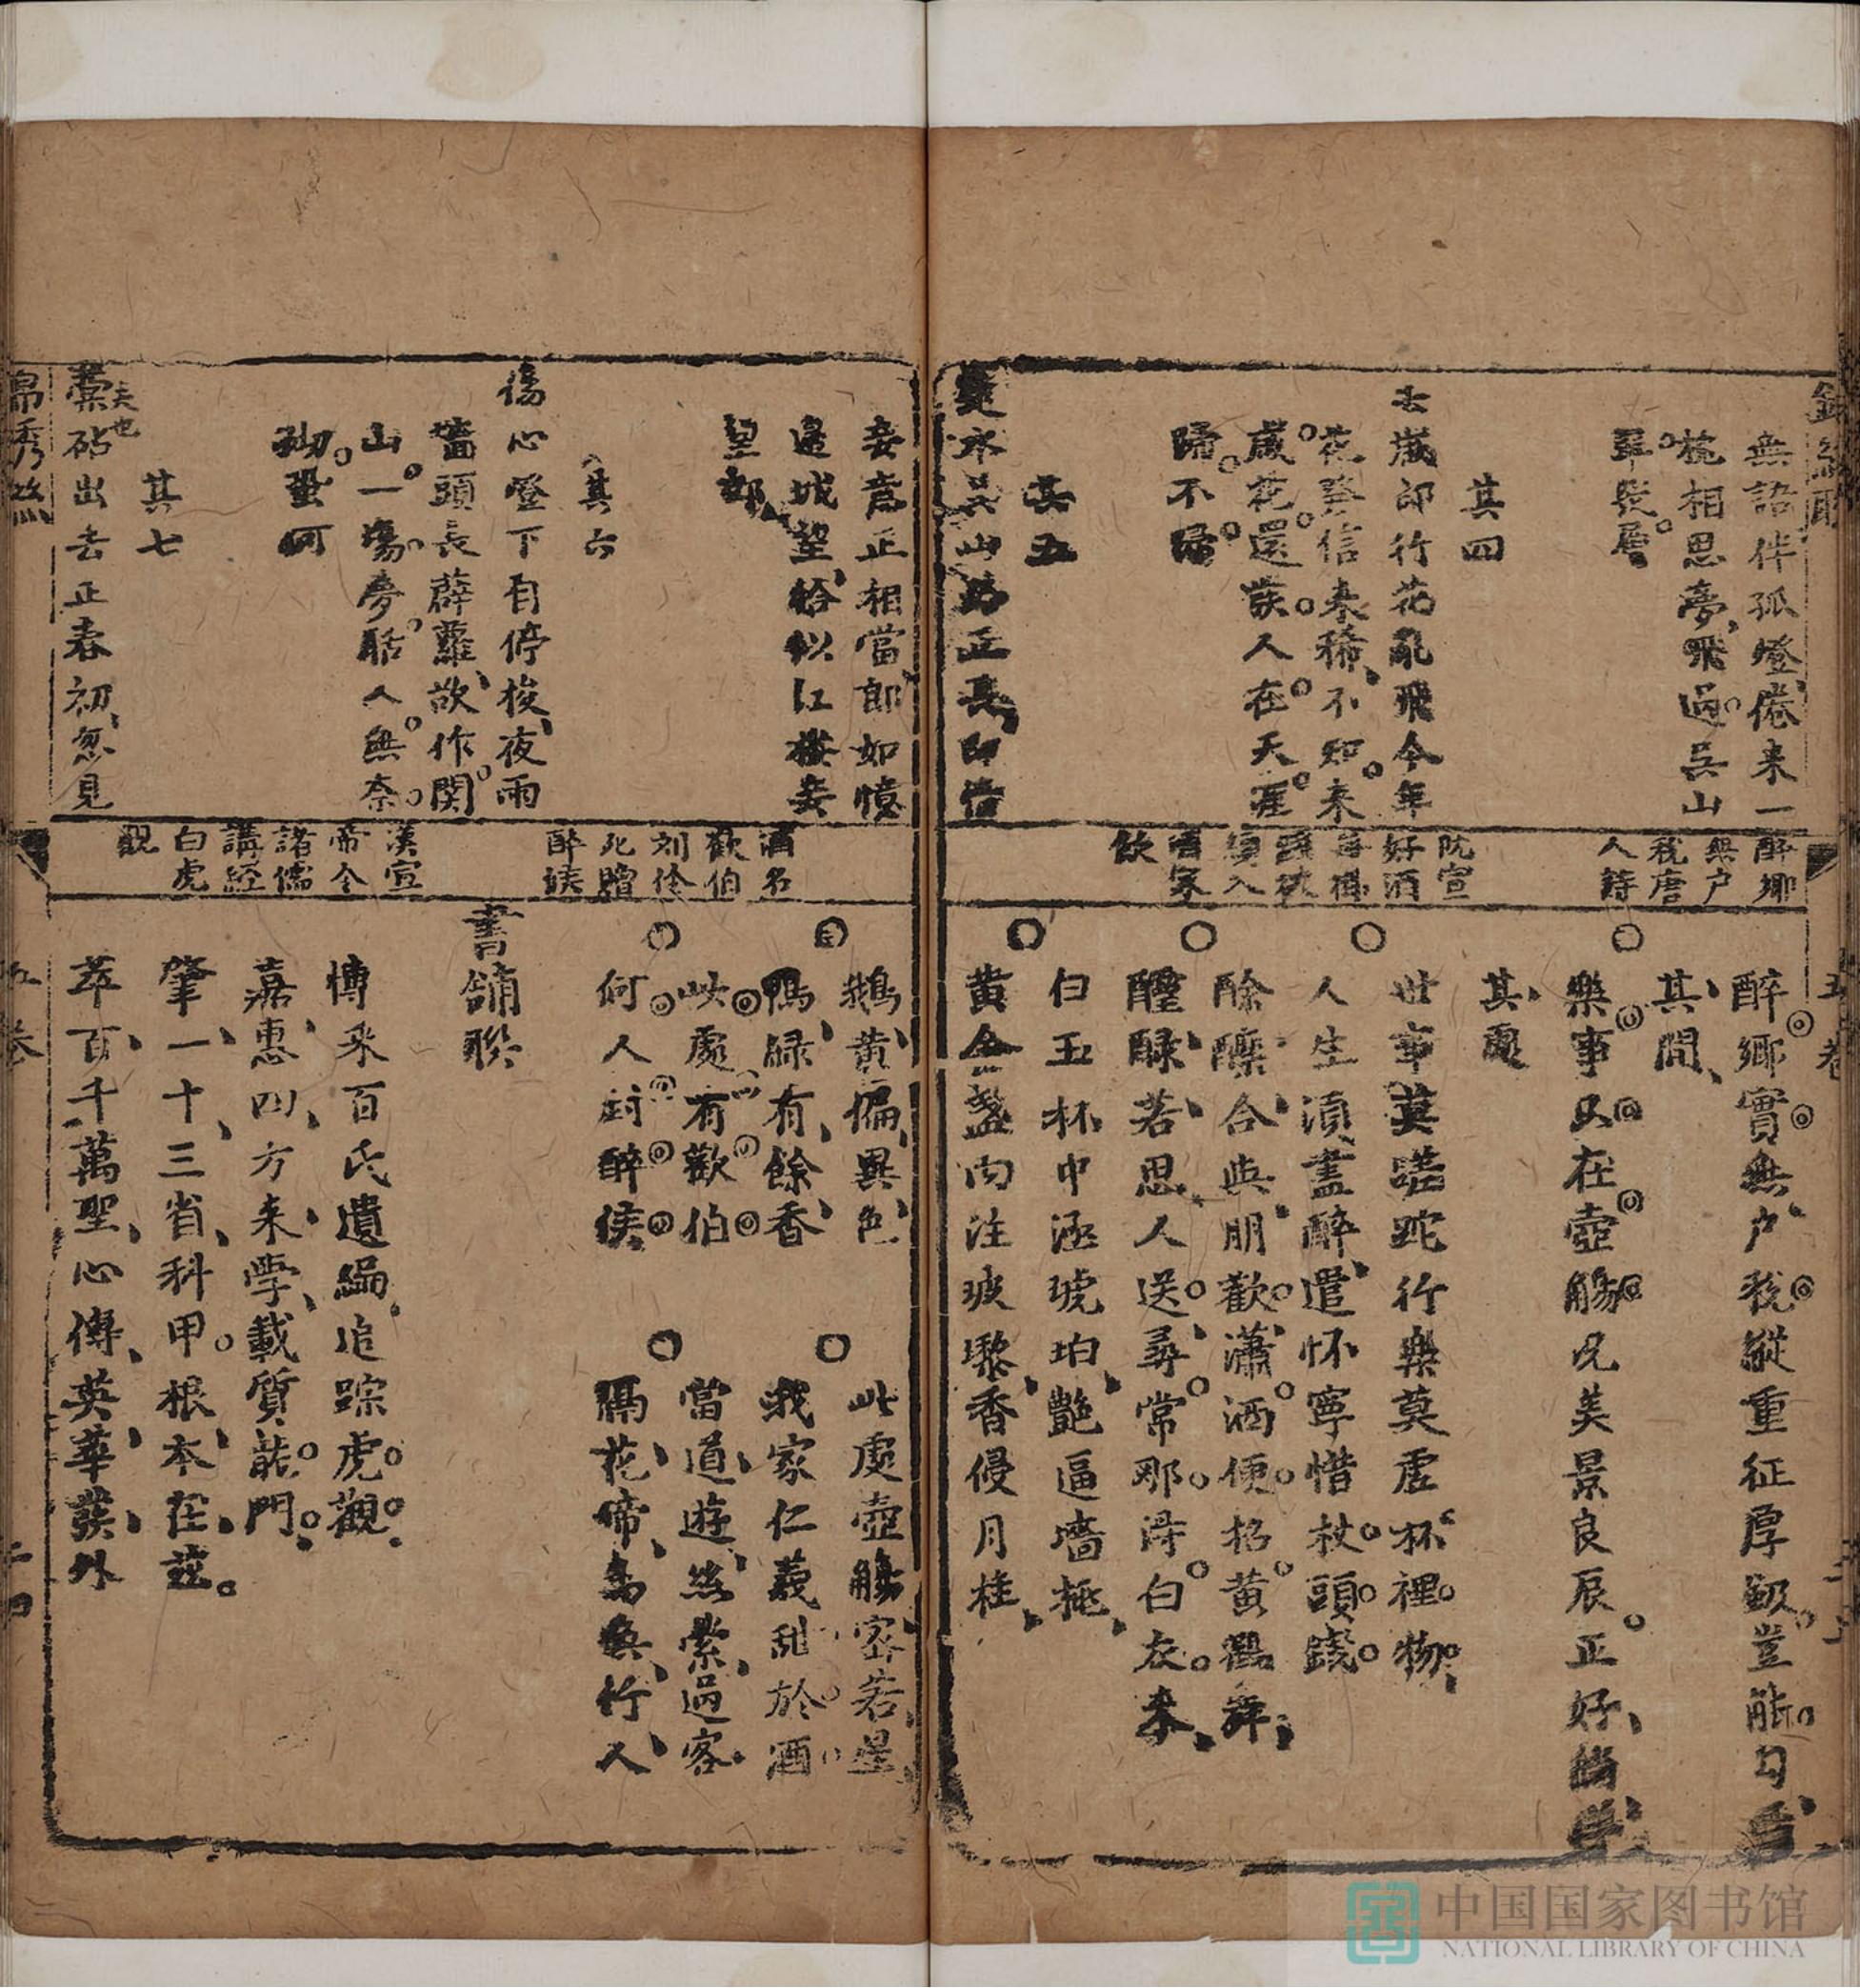 無語伴孤燈倦来一
枕相思夢飛過吳山
其四
去歲郎行花乱飛今年
花發信来稀不知来
歲花還發人在天涯
歸不歸
其五
吳山
醉鄉
無户
稅唐
人詩
阮宣
好酒
飲
五卷
醉鄉實無户稅縱重征厚斂豈能勾
其間
樂事只在壺觴況美景良辰正好
其處
世事莫蹉跎行樂莫虗杯裡物
人生須盡醉遣怀寧惜杖頭錢
酴醾合與朋歡瀟洒便招黄鶴舞
醽醁若思人送尋常那淂白衣来
白玉杯中涵琥珀艷逼墻桃
黄金盞内注玻瓈香侵月桂
妾意正相當郎如憶
邉城望恰似江樓妾
望郎
其六
傷心燈下自停梭夜雨
墻頭長薜蘿欲作関
山一塲夢聒人無奈
砌蛩何
其七
藁砧出去正春初忽見
夫也
酒名
歡伯
刘伶
死贈
醉侯
漢宣
帝令
諸儒
講經
白虎
觀
鵝黄偏異色
鴨緑有餘香
此處有歡伯
何人封醉侯
此處壺觴密若星
我家仁義甜於酒
當道遊絲縈過客
隔花啼鳥喚行人
書舖聯
博采百氏遺編追踪虎觀
嘉惠四方来學載質龍門
肇一十三省科甲根本在茲
萃百千萬聖心傳英華發外
帛秀
五卷
二十四
中国国家图书馆
NATIONAL LIBRARY OF CHINA